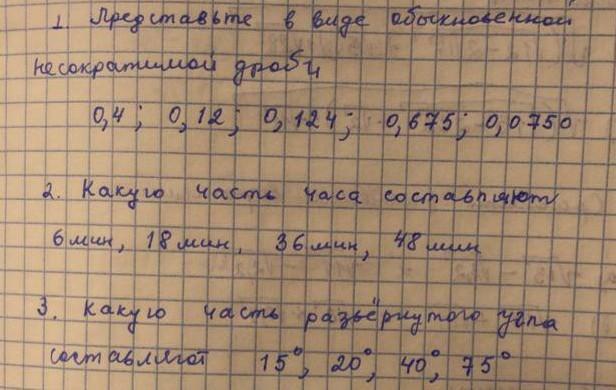 1. Представьте в виде обыкновенной
несократимой дроби
0,4; 0,12; 0,124; 0,675; 0,0750
2. Какую часть часа составляют
6 мин, 18 мин, 36 мин, 48 мин
3. Какую часть развёрнутого угла
составляют 15°, 20°, 40°, 75°